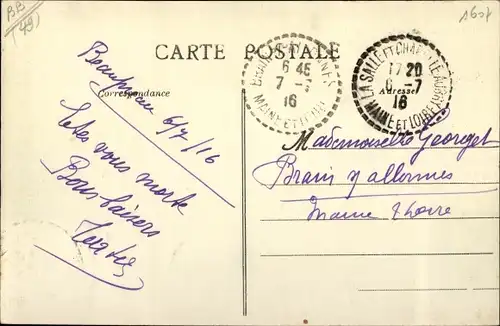 BB
(49)
1607
CARTE POSTALE
Correspondance
Adresse
6 45
7 -7
16
MAINE ET LOIRE
LA SALLE ET CHAPELLE AUBRY
17 20
6 -7
16
MAINE ET LOIRE
Beaupreau 6/7/16
Êtes vous morte
Bons baisers
Mademoiselle Georget
Brain s/ allonnes
Maine & Loire